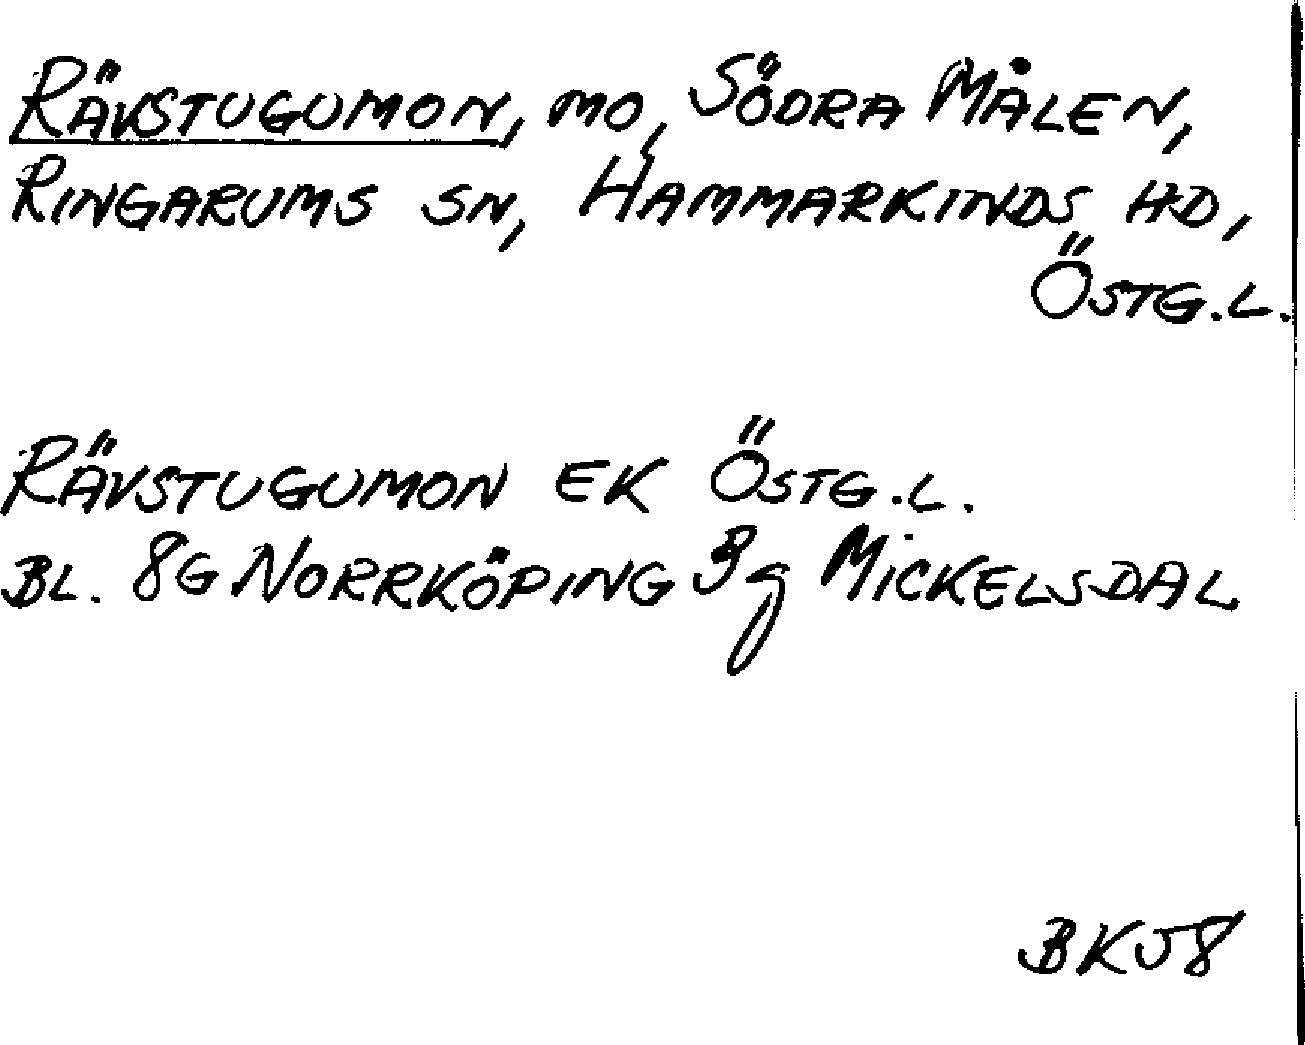 RÄVSTUGUMON, MO, SÖDRA MÅLEN,
RINGARUMS SN, HAMMARKINDS HD,
ÖSTG.L.
RÄVSTUGUMON EK ÖSTG.L.
BL. 8G NORRKÖPING 3g MICKELSDAL
BKJ8